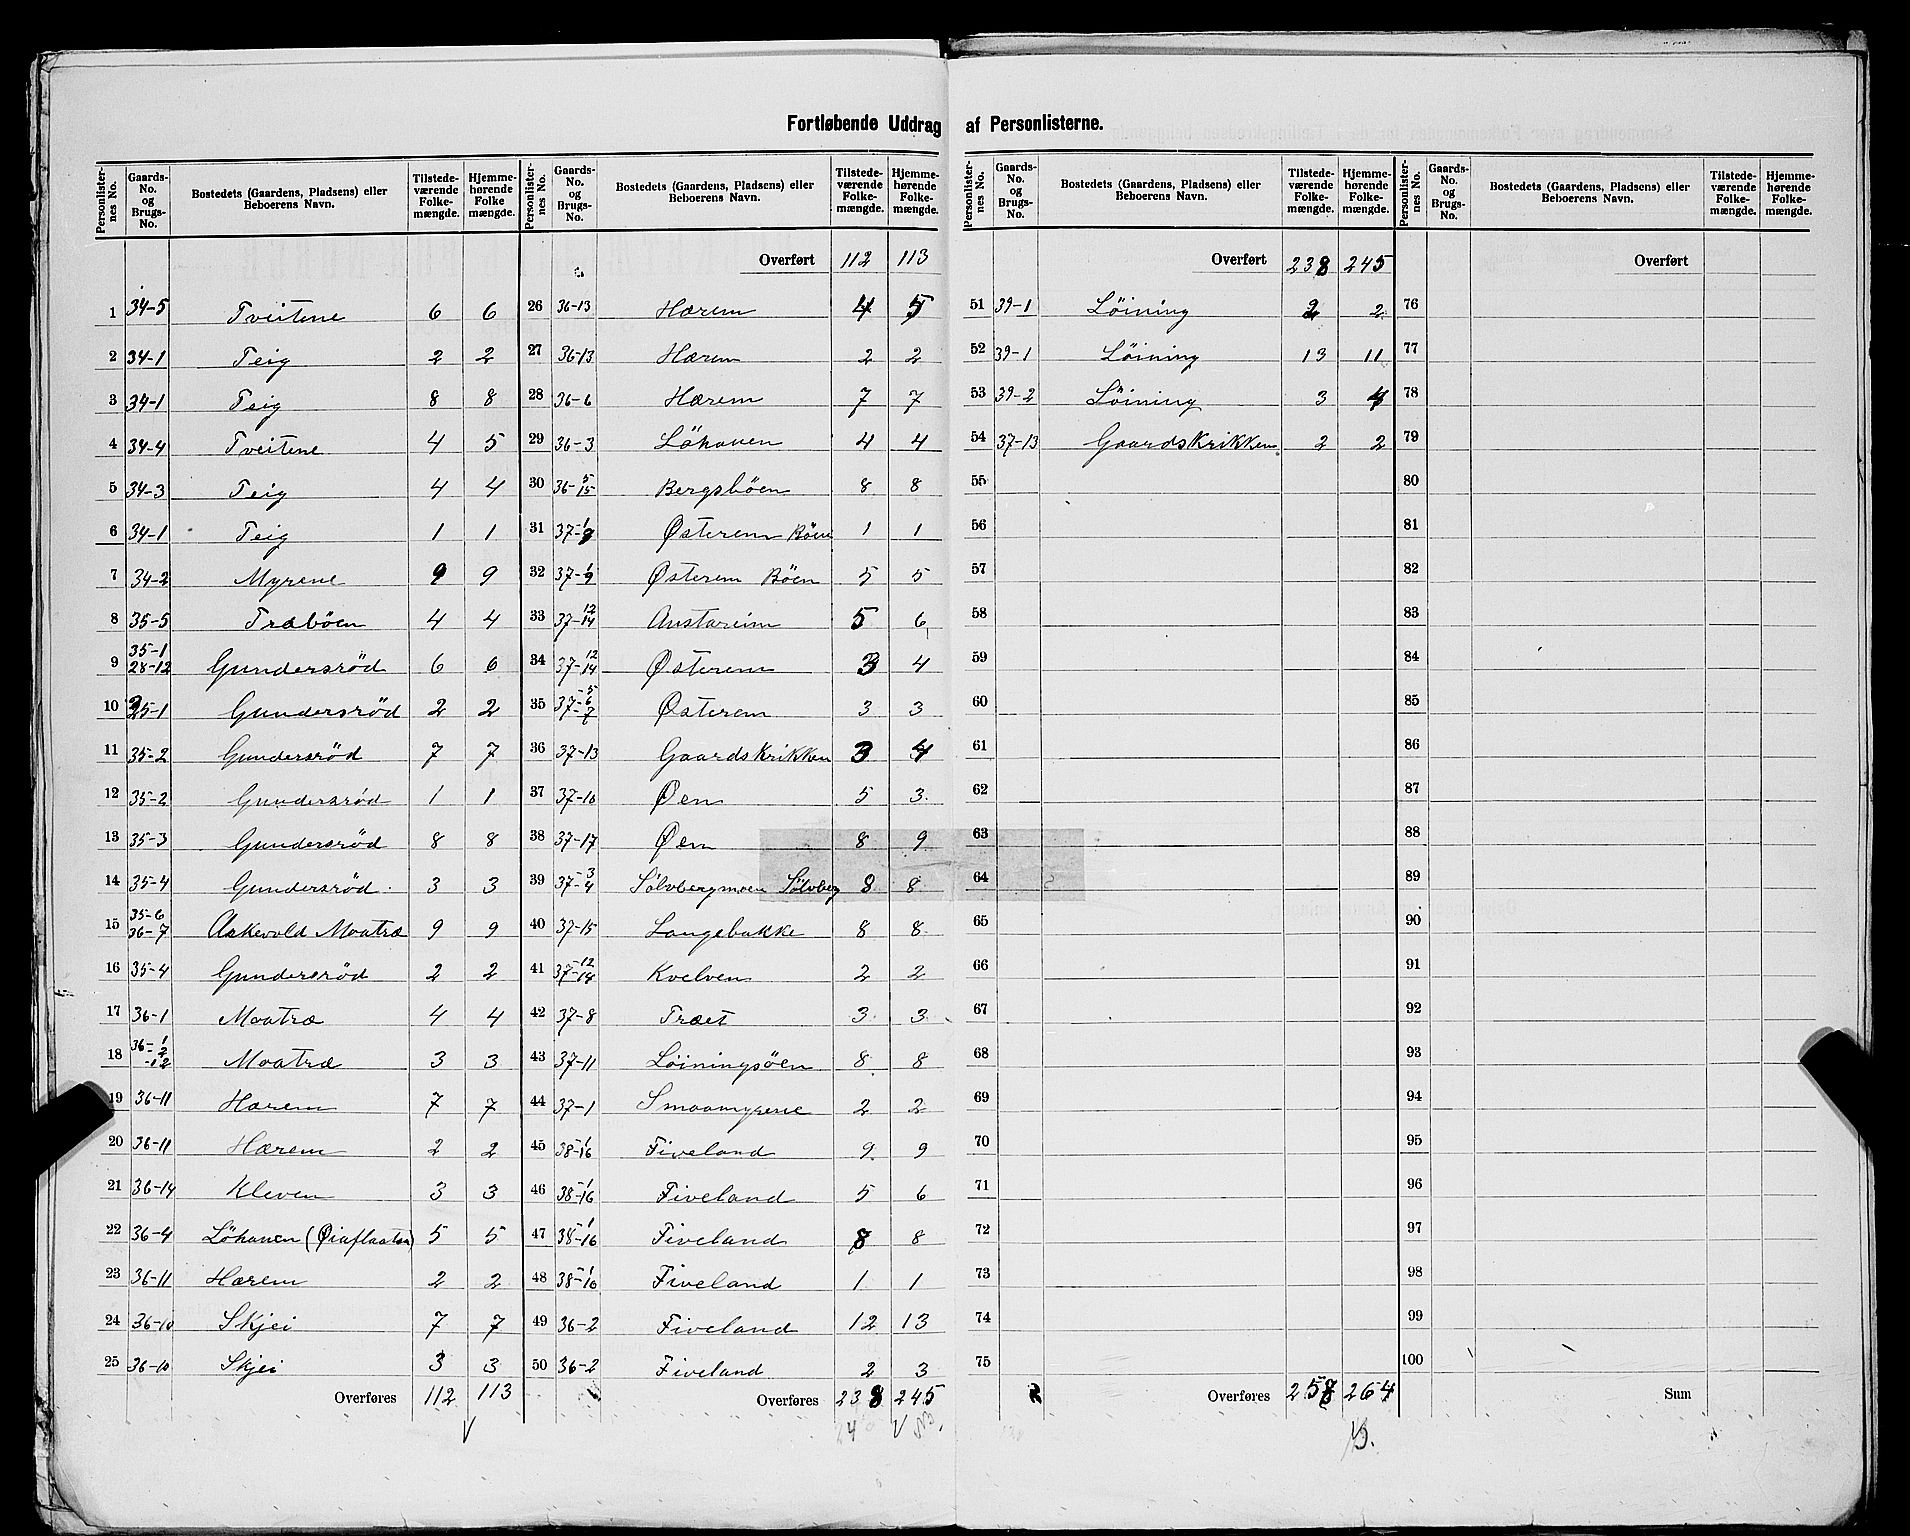 Fortløbende Uddrag af Personlisterne.
Personlister-nes No. | Gaards-No. og Brugs-No. | Bostedets (Gaardens, Pladsens) eller Beboerens Navn. | Tilstede-værende Folke-mængde. | Hjemme-hørende Folke mængde.
1 34-5 Tveitene 6 6
2 34-1 Teig 2 2
3 34-1 Teig 8 8
4 34-4 Tveitene 4 5
5 34-3 Teig 4 4
6 34-1 Teig 1 1
7 34-2 Myrene 9 9
8 35-5 Træböen 4 4
9 35-1 28-12 Gundersröd 6 6
10 35-1 Gundersröd 2 2
11 35-2 Gundersröd 7 7
12 35-2 Gundersröd 1 1
13 35-3 Gundersröd 8 8
14 35-4 Gundersröd 3 3
15 35-6 36-7 Askevold Moatræ 9 9
16 35-4 Gundersröd 2 2
17 36-1 Moatræ 4 4
18 36-1 -2 -12 Moatræ 3 3
19 36-11 Hærem 7 7
20 36-11 Hærem 2 2
21 36-14 Kleven 3 3
22 36-4 Löhauen (Øiaflaaten) 5 5
23 36-11 Hærem 2 2
24 36-10 Skjei 7 7
25 36-10 Skjei 3 3
Overføres 112 113
Personlister-nes No. | Gaards-No. og Brugs-No. | Bostedets (Gaardens, Pladsens) eller Beboerens Navn. | Tilstede-værende Folke-mængde. | Hjemme-hørende Folke-mængde.
Overført 112 113
26 36-13 Hærem 4 5
27 36-13 Hærem 2 2
28 36-6 Hærem 7 7
29 36-3 Löhauen 4 4
30 36-5 15 Bergsböen 8 8
31 37-1 9 Østerem Böen 1 1
32 37-1 9 Østerem Böen 5 5
33 37-12 14 Austareim 5 6
34 37-12 14 Østerem 3 4
35 37-5 6 7 Østerem 3 3
36 37-13 Gaardskrikken 3 4
37 37-10 Øen 5 3
38 37-17 Øen 8 9
39 37-3 4 Sölvbergmoen Sölvberg 8 8
40 37-15 Langebakke 8 8
41 37-12 14 Kvelven 2 2
42 37-8 Træet 3 3
43 37-11 Löiningsöen 8 8
44 37-1 Smaamyrene 2 2
45 38-1 16 Fiveland 9 9
46 38-1 16 Fiveland 5 6
47 38-1 16 Fiveland 8 8
48 38-1 10 Fiveland 1 1
49 36-2 Fiveland 12 13
50 36-2 Fiveland 2 3
Overføres 238 245
Personlister-nes No. | Gaards-No. og Brugs-No. | Bostedets (Gaardens, Pladsens) eller Beboerens Navn. | Tilstede-værende Folke-mængde. | Hjemme-hørende Folke-mængde.
Overført 238 245
51 39-1 Löining 2 2
52 39-1 Löining 13 11
53 39-2 Löining 3 4
54 37-13 Gaardskrikken 2 2
55
56
57
58
59
60
61
62
63
64
65
66
67
68
69
70
71
72
73
74
75
Overføres 258 264
Personlister-nes No. | Gaards-No. og Brugs-No. | Bostedets (Gaardens, Pladsens) eller Beboerens Navn. | Tilstede-værende Folke-mængde. | Hjemme-hørende Folke-mængde.
Overført
76
77
78
79
80
81
82
83
84
85
86
87
88
89
90
91
92
93
94
95
96
97
98
99
100
Sum